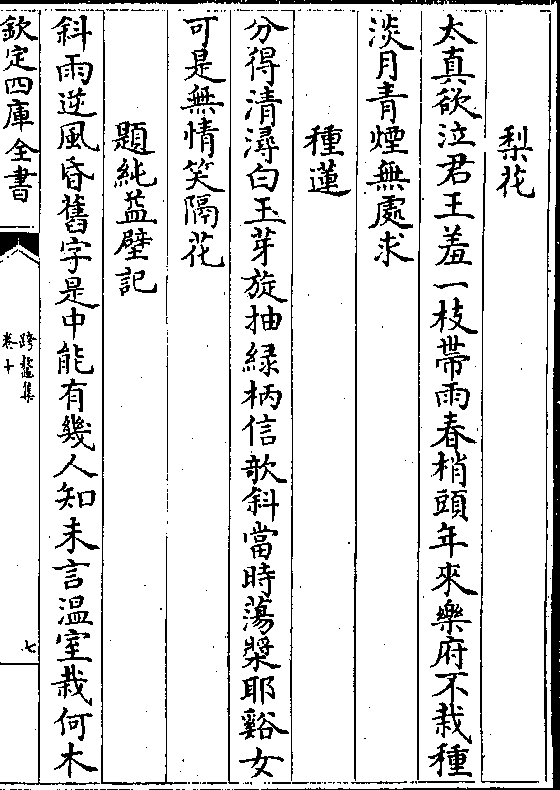 梨花
太真欲泣君王羞一枝帶雨春梢頭年來樂府不栽種
淡月青煙無處求
種蓮
分得清潯白玉芽旋抽緑柄信欹斜當時蕩槳耶谿女
可是無情笑隔花
題純益壁記
斜雨逆風昏舊字是中能有幾人知未言溫室栽何木
欽定四庫全書
跨鼇集
卷十
七